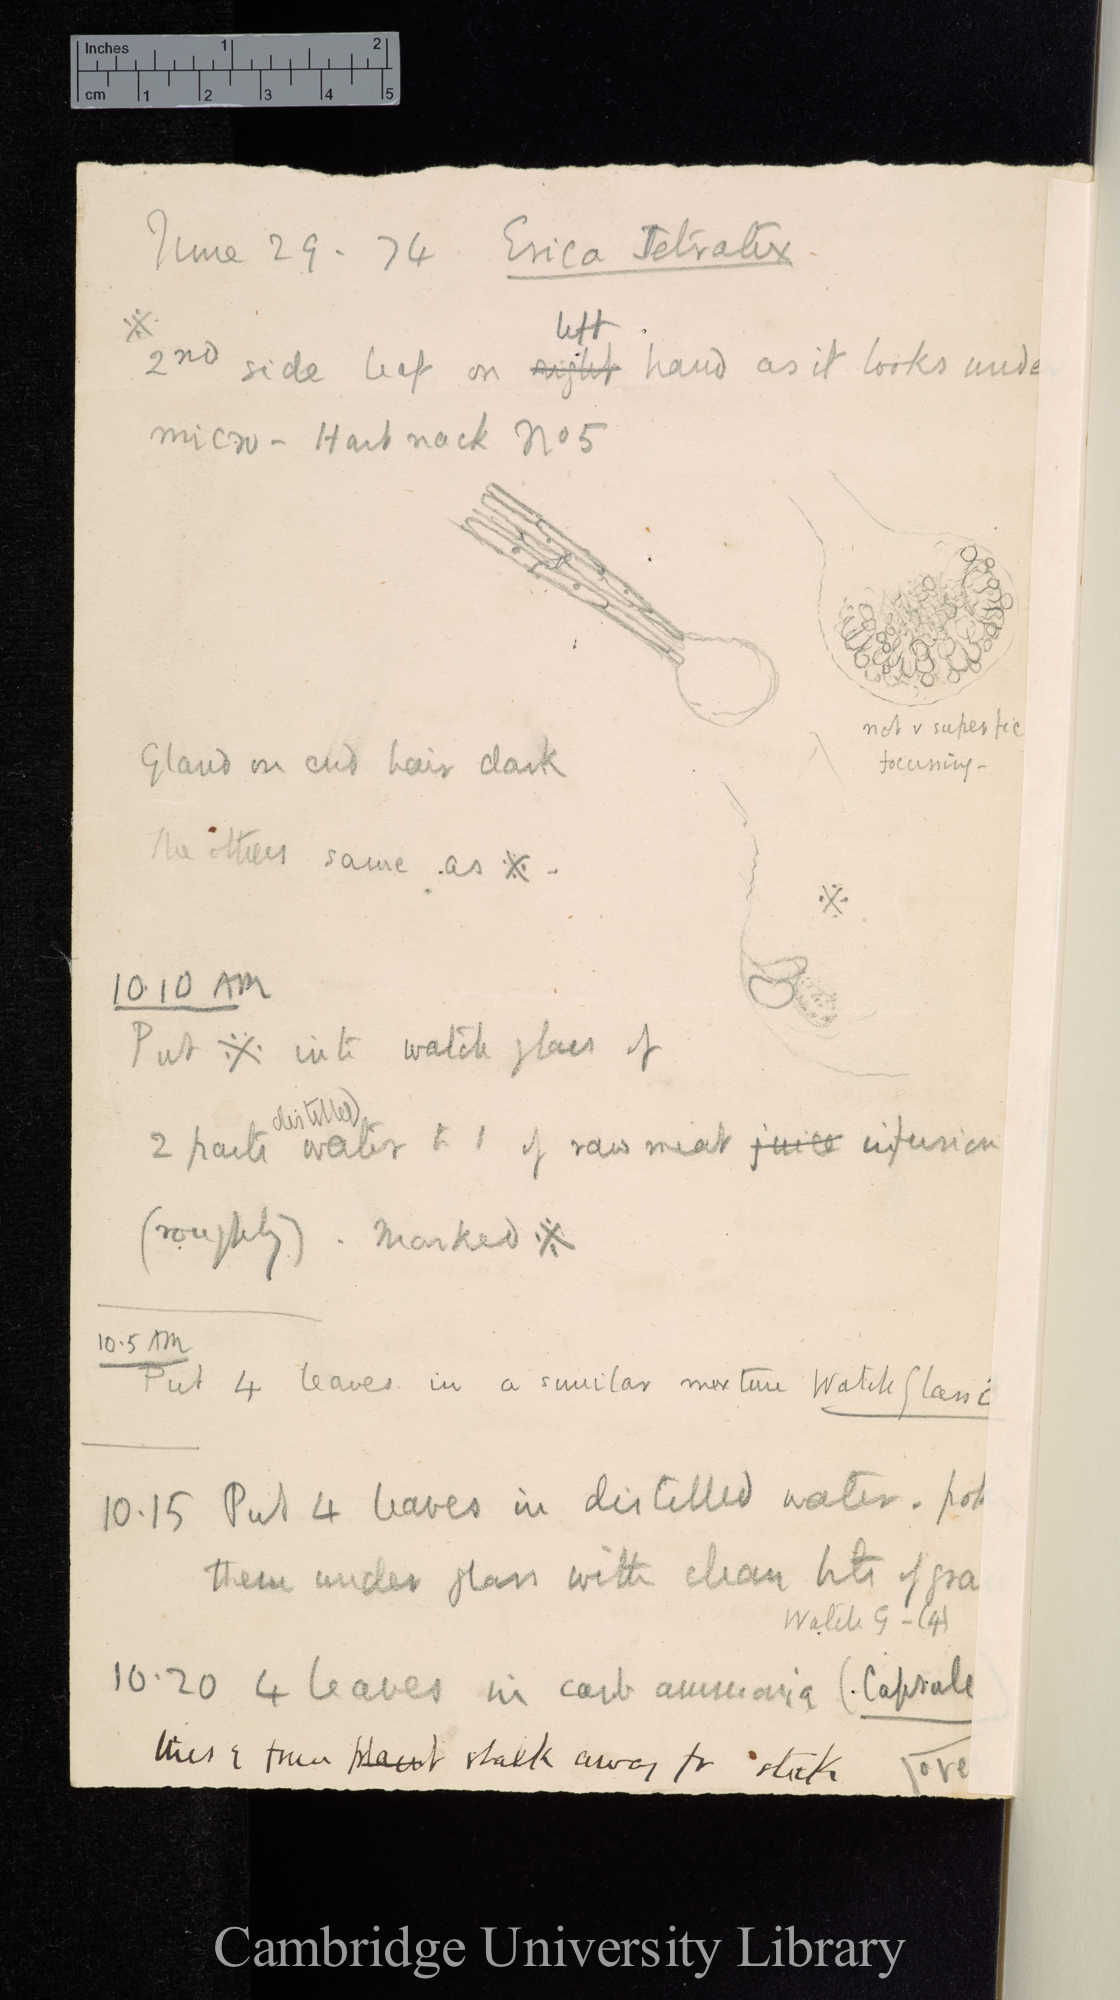 Inches 1 2
cm 1 2 3 4 5
June 29 - 74 Erica Tetralix
※
left
2nd side leaf on right hand as it looks unde
micro - Hartnack No 5
not v superfic
focussing -
Gland on end hair dark
The others same as ※ -
※
10.10 AM
Put ※ into watch glass of
distilled
2 parts water to 1 of raw meat juice infusion
(roughly). Marked ※
10.5 AM
Put 4 leaves in a similar mixture Watch Glass
10.15 Put 4 leaves in distilled water.
them under glass with clean bits of gra
Watch G - (4)
10.20 4 leaves in carb ammonia (Capsule
from plant stalk away fr stalk